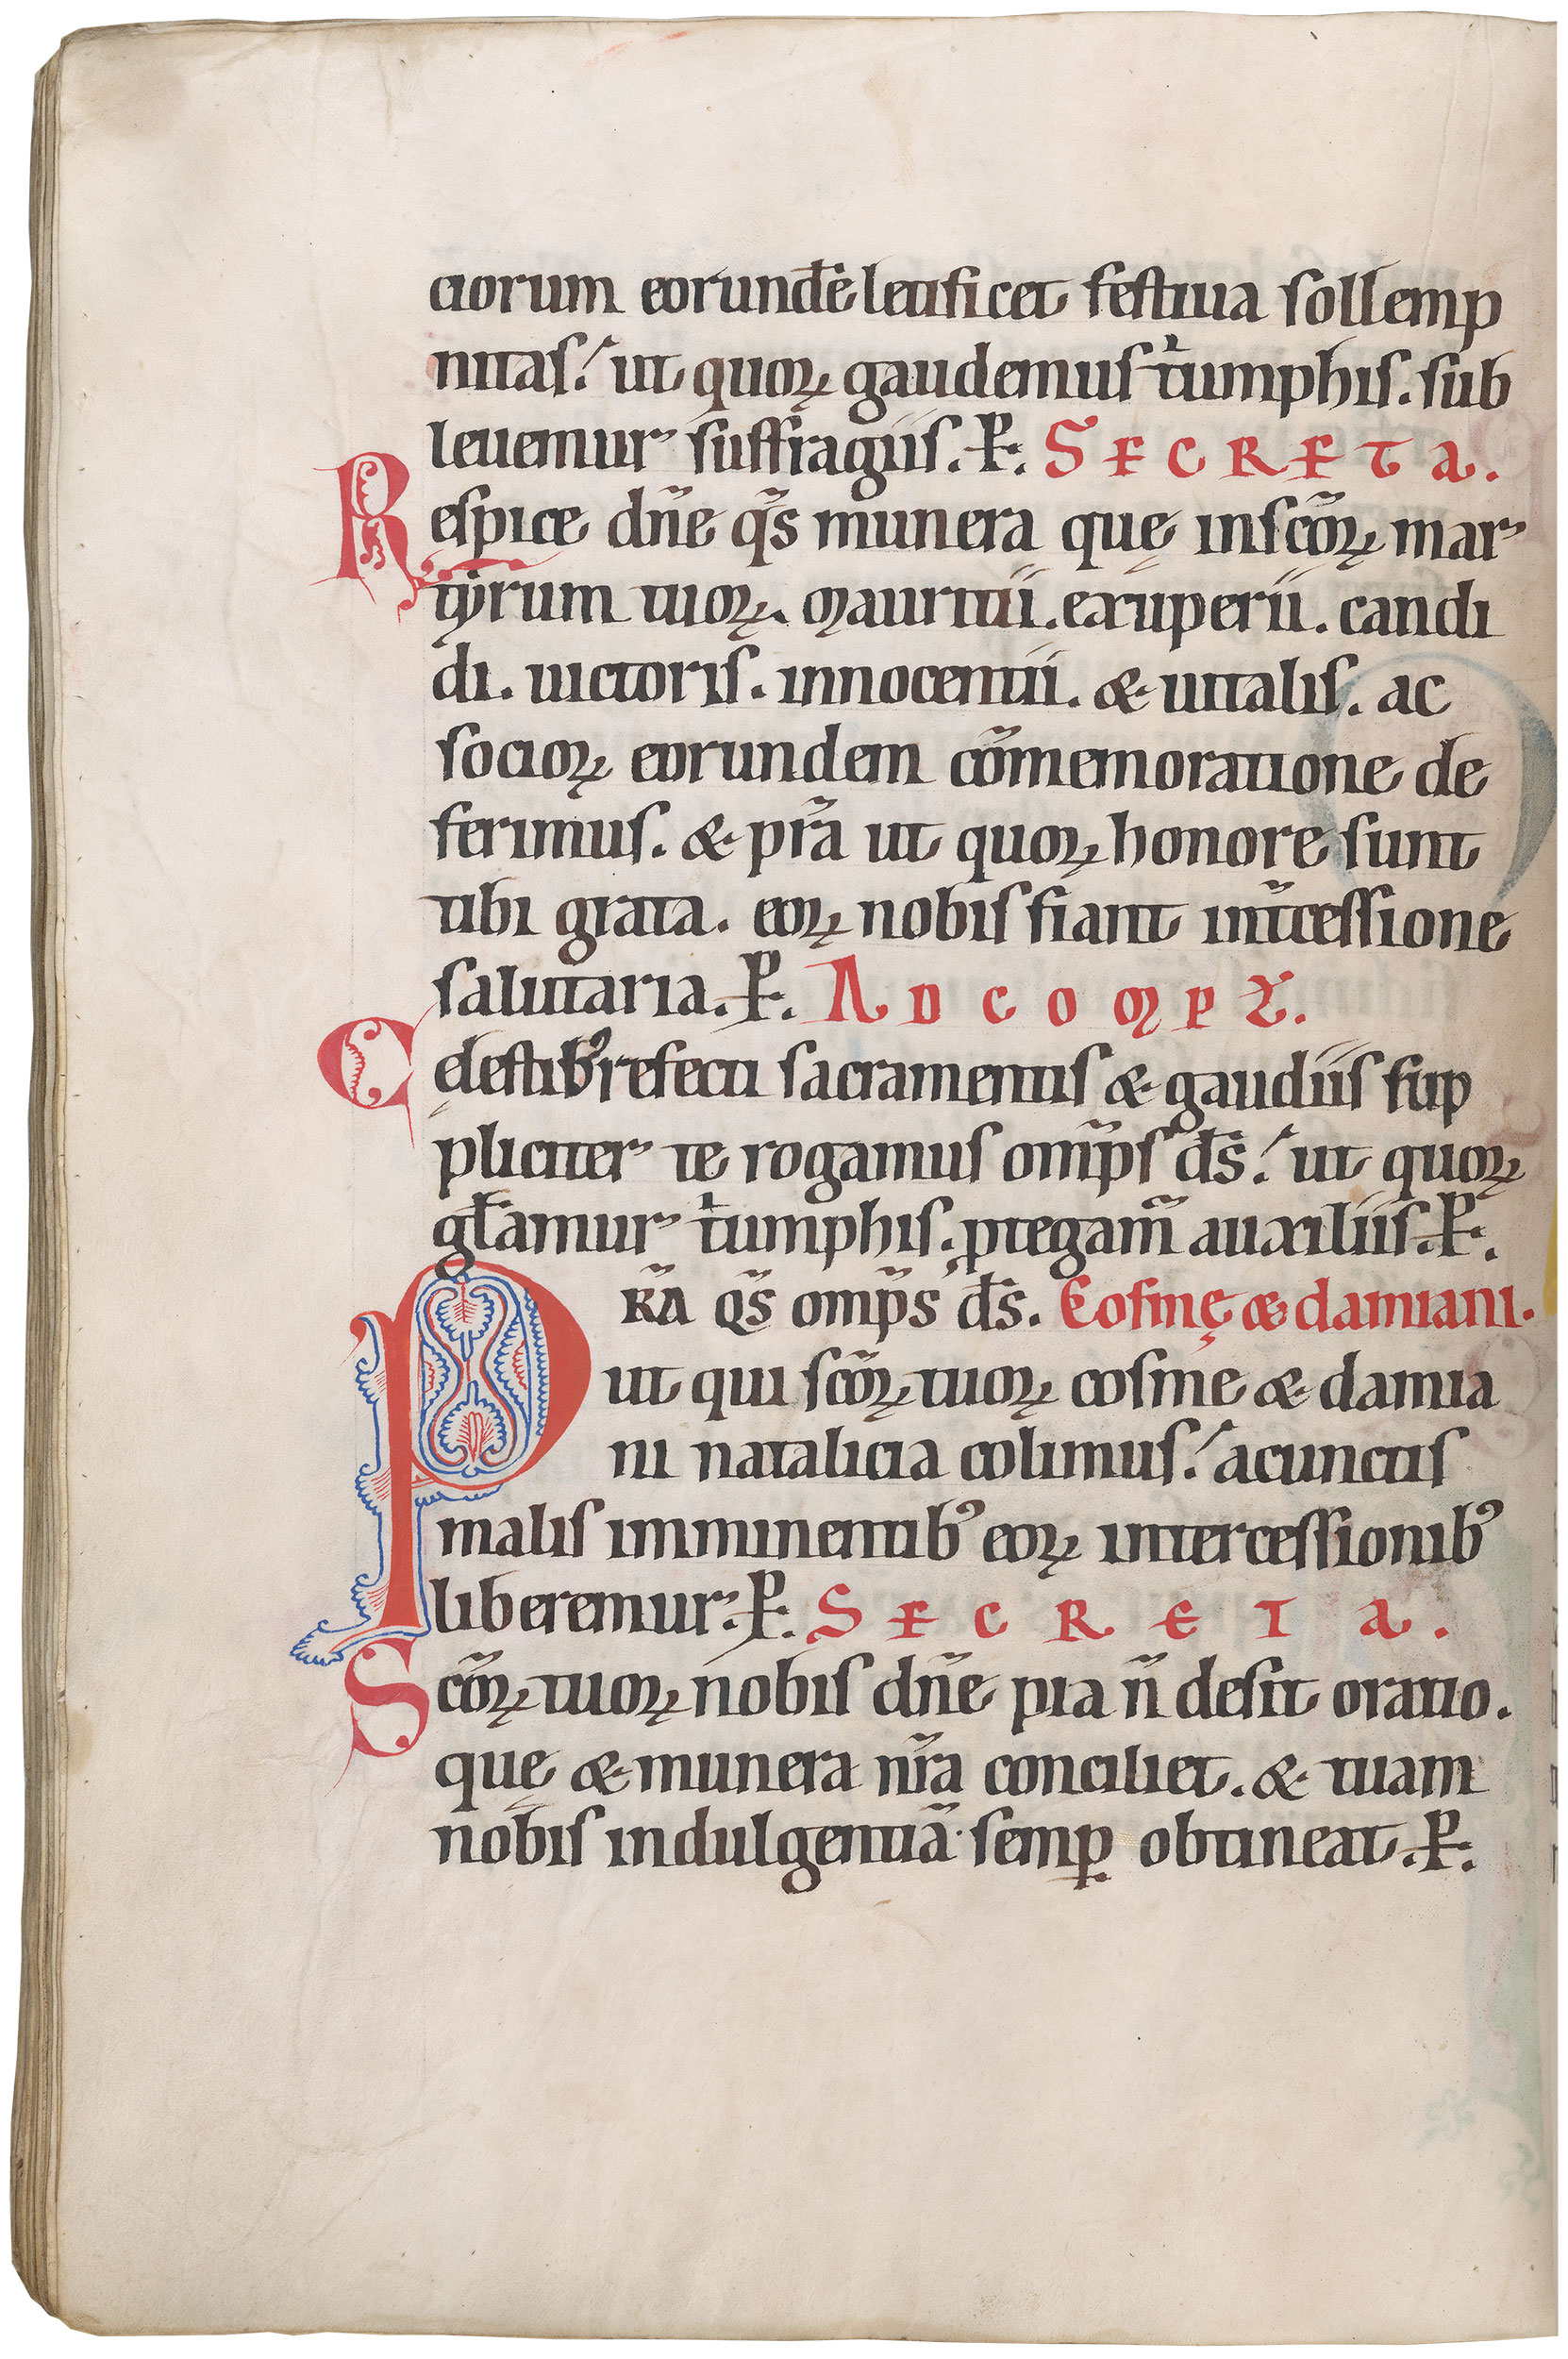 ciorum eorundē letificet festiua sollemp
nitas. ut quoꝝ gaudemus tͥumphis. sub
leuemur suffragiis. P̶. SECRETA.
Respice dn̄e q̄s munera quę insc̄oꝝ mar
tẏrum tuoꝝ. Mauritii. exuperii. candi
di. uictoris. innocentii. & uitalis. ac
socioꝝ eorundem cōmemoratione de
ferimus. & p̄ra ut quoꝝ honore sunt
tibi grata. eoꝝ nobis fiant int̄cessione
salutaria. P̶. AD COMPL̄.
Celestib⁹ refecti sacramentis & gaudiis sup
pliciter te rogamus omp̄s ds̄. ut quoꝝ
gl̄amur tͥumphis. ꝓtegam̄ auxiliis. P̶.
PRA̅ QS̄ omp̄s ds̄. Cosmę & damiani.
ut qui sc̄oꝝ tuoꝝ cosme & damia
ni natalicia colimus. acunctis
malis imminentib⁹ eoꝝ intercessionib⁹
liberemur. P̶. SECRETA.
Sc̄oꝝ tuoꝝ nobis dn̄e pia n̄ desit oratio.
quę & munera nr̄a conciliet. & tuam
nobis indulgentiā semꝑ obtineat. P̶.